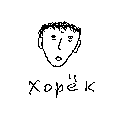 хорёк